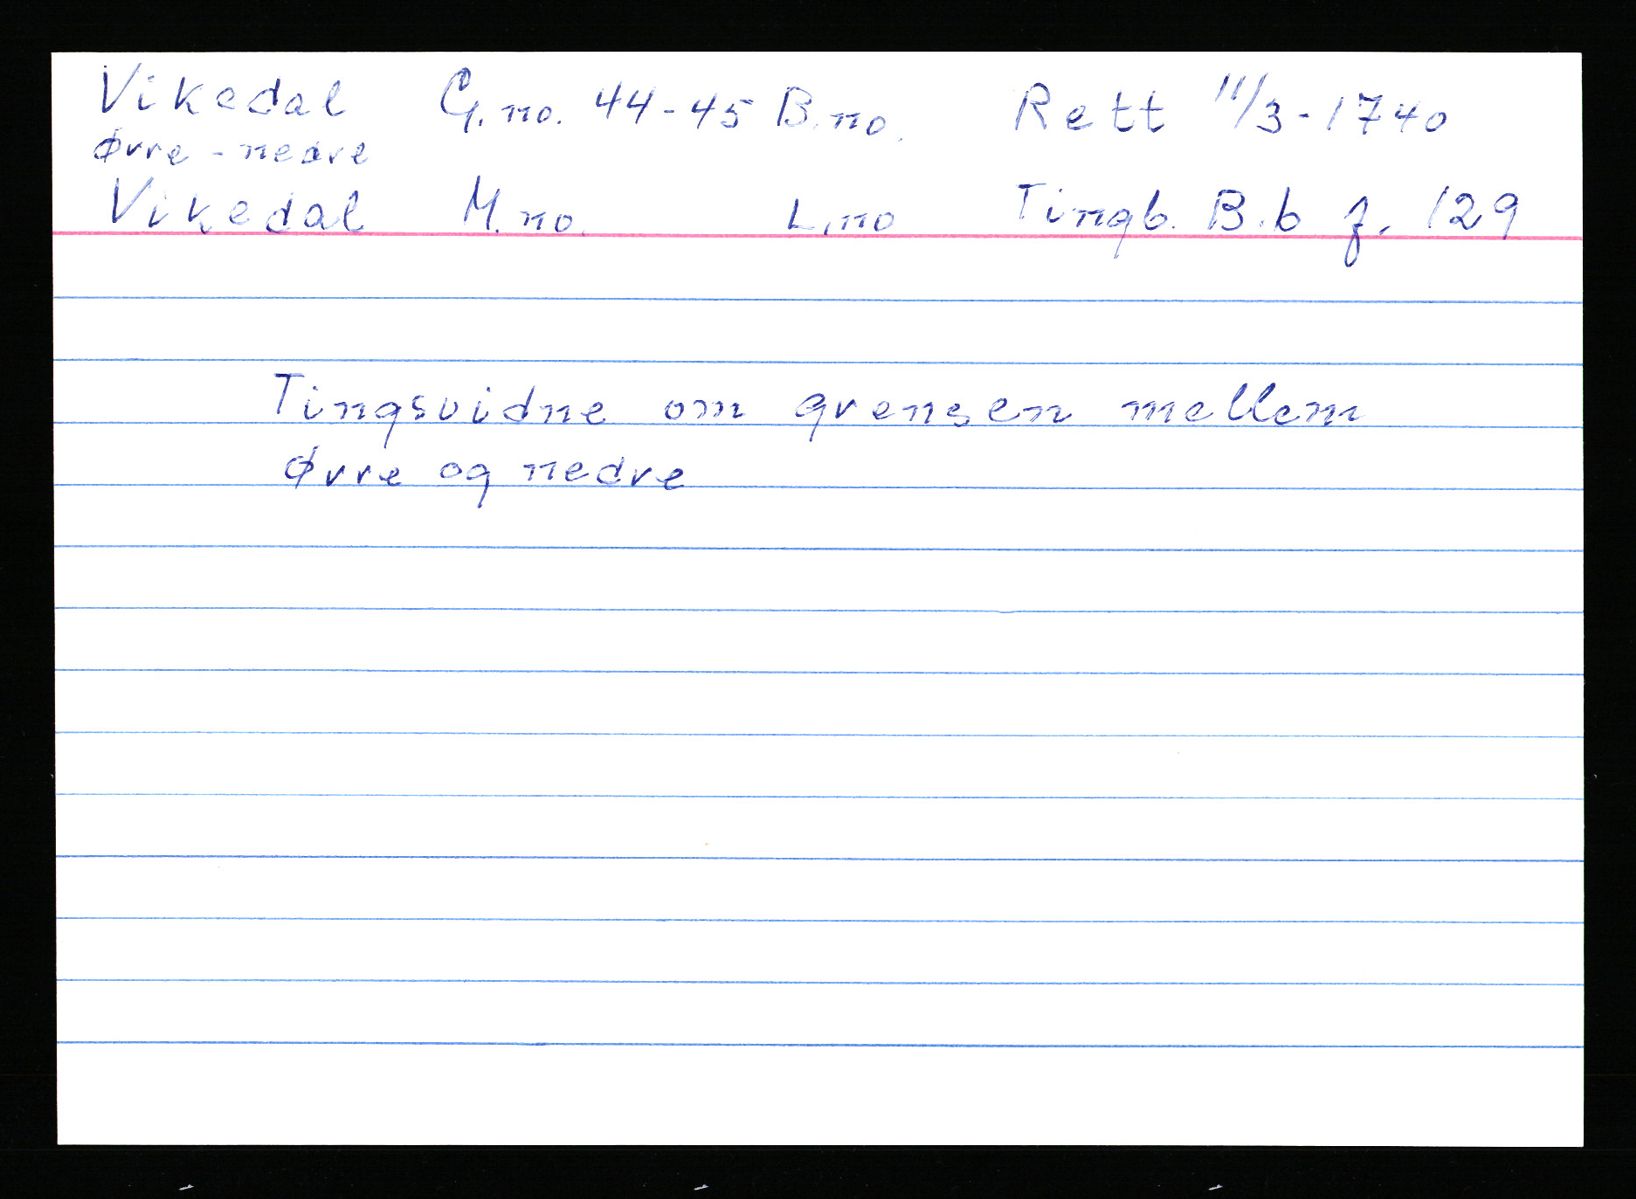 Vikedal G.no. 44-45 B.no. Rett 11/3-1740
Øvre - nedre
Vikedal M.no. L.no Tingb. B.b f. 129
Tingsvidne om grensen mellem
Øvre og nedre